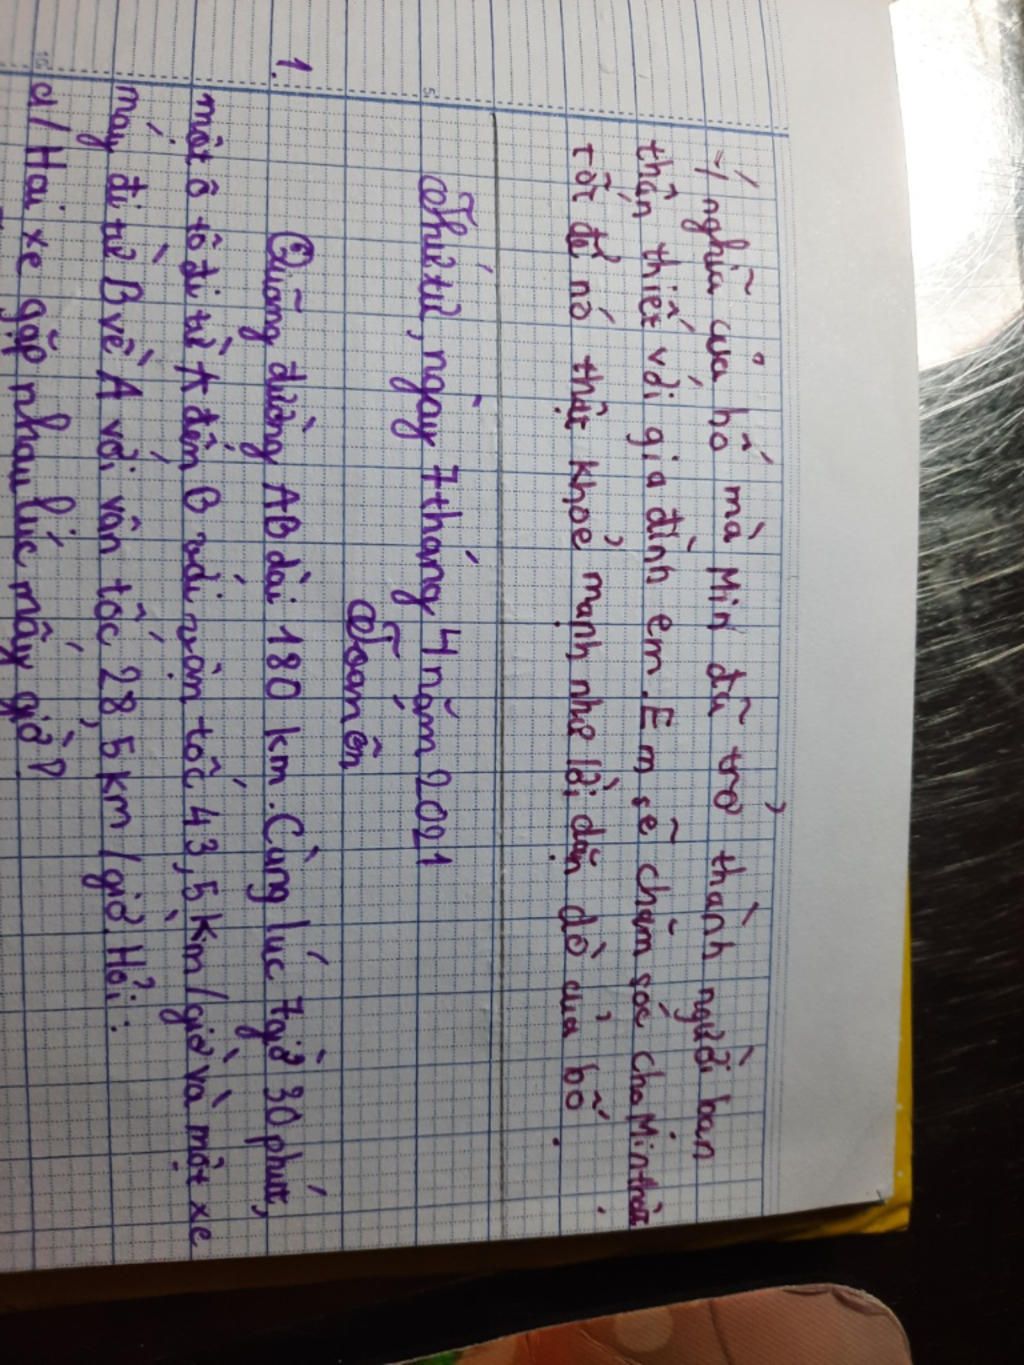 ý nghĩa của bố mà Min đã trở thành người bạn
thân thiết với gia đình em. Em sẽ chăm sóc cho Min thật
tốt để nó thật khoẻ mạnh như lời dặn dò của bố.
Thứ tư, ngày 7 tháng 4 năm 2021
Toán ôn
1. Quãng đường AB dài 180 km. Cùng lúc 7 giờ 30 phút,
một ô tô đi từ A đến B với vận tốc 43,5 km/giờ và một xe
máy đi từ B về A với vân tốc 28,5 km/giờ. Hỏi:
a/ Hai xe gặp nhau lúc mấy giờ?